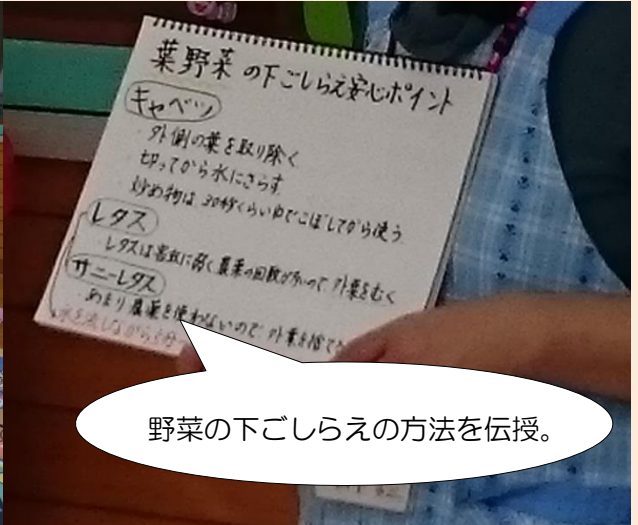 葉野菜の下ごしらえ安心ポイント
キャベツ
・外側の葉を取り除く
・切ってから水にさらす
・炒め物は30秒くらいゆでこぼしてから使う
レタス
・レタスは害虫に弱く農薬の回数が多いので外葉をむく
サニーレタス
あまり農薬を使わないので外葉を捨て
水を流しながら
野菜の下ごしらえの方法を伝授。